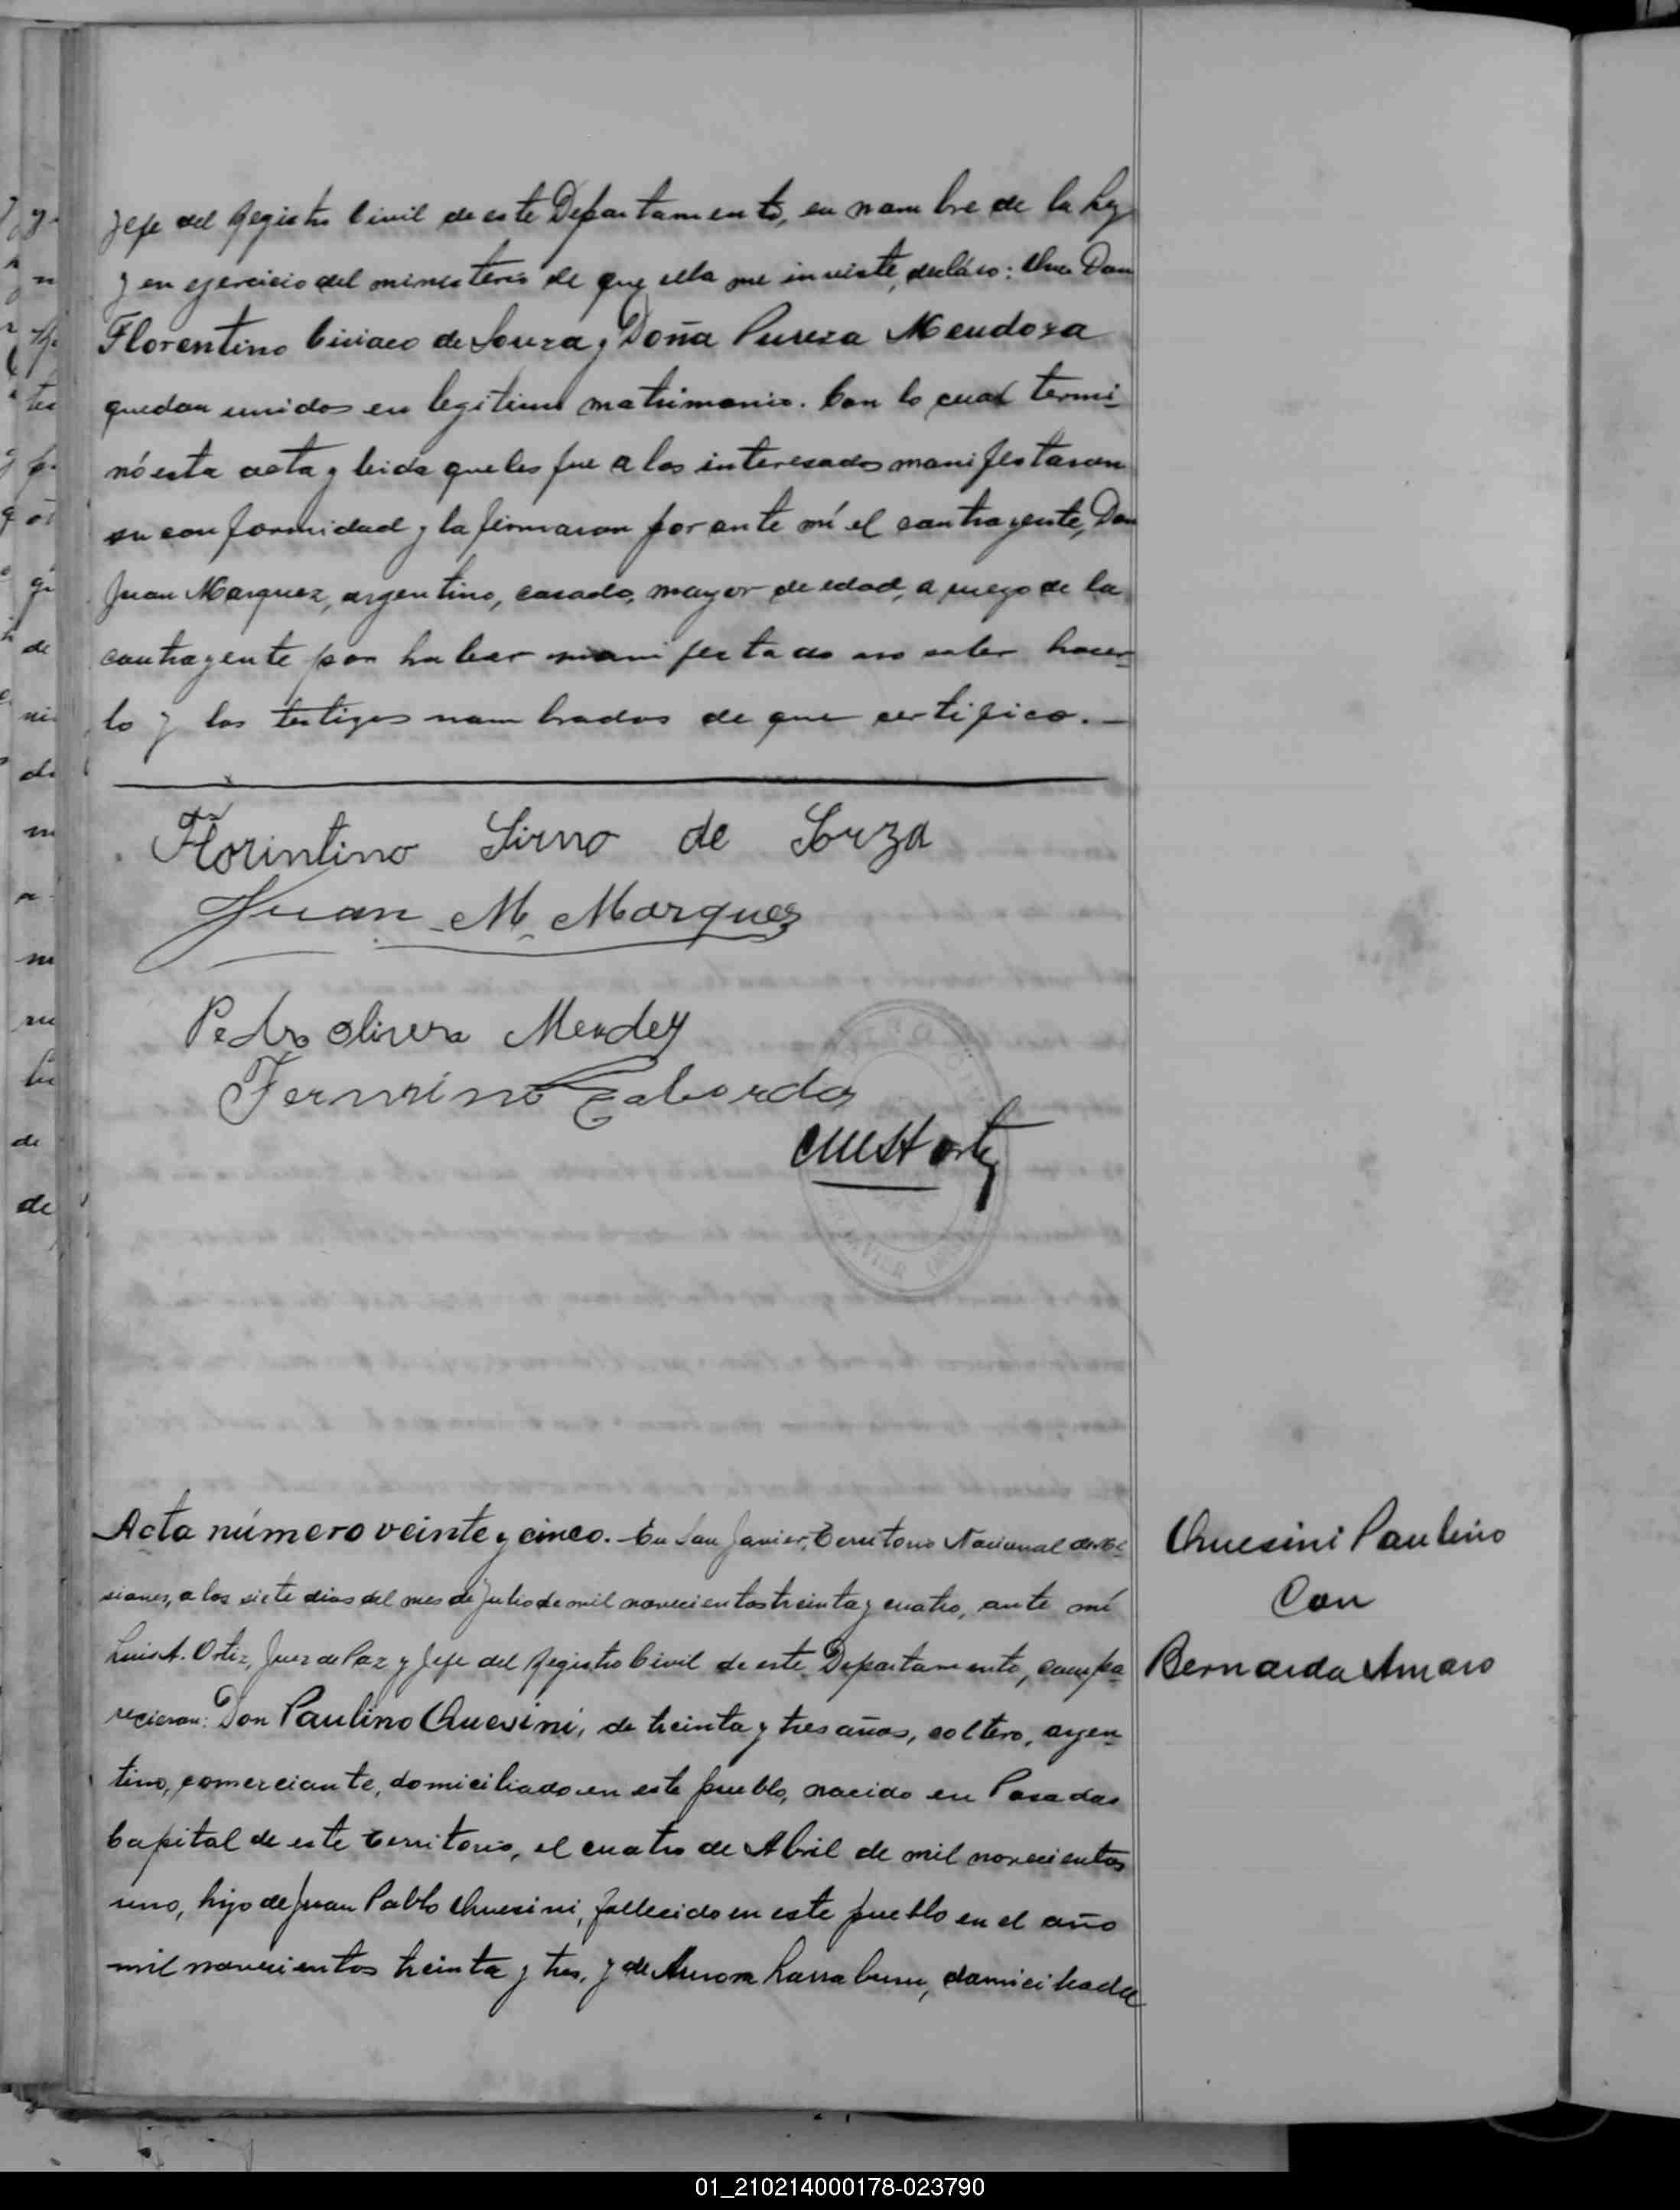 Jefe del Registro Civil de este Departamento, en nombre de la Ley
y en ejercicio del ministerio de que ella me inviste, declaro: Que Don
Florentino Ciriaco de Souza y Doña Pureza Mendoza
quedan unidos en legitimo matrimonio. Con lo cual termi-
nó esta acta y leida que les fue a los interesados manifestaron
su conformidad y la firmaron por ante mí el contrayente, Don
Juan Marquez, argentino, casado, mayor de edad, a ruego de la
contrayente por haber manifestado no saber hacer-
lo y los testigos nombrados de que certifico.—
Florintino Sirno de Sorza
Juan M. Marquez
Pedro Olivera Mendez
Fermino Taborda
Luis A Ortiz
Acta número veinte y cinco.- En San Javier, Territorio Nacional de Mi-
siones, a los siete dias del mes de Julio de mil novecientos treinta y cuatro, ante mí
Luis A. Ortiz, Juez de Paz y Jefe del Registro Civil de este Departamento, compa-
recieron: Don Paulino Quesini, de treinta y tres años, soltero, argen-
tino, comerciante, domiciliado en este pueblo, nacido en Posadas
Capital de este Territorio, el cuatro de Abril de mil novecientos
uno, hijo de Juan Pablo Quesini, fallecido en este pueblo en el año
mil novecientos treinta y tres, y de Aurora Larraburu, domiciliada
Quesini Paulino
Con
Bernarda Amaro
01_210214000178-023790